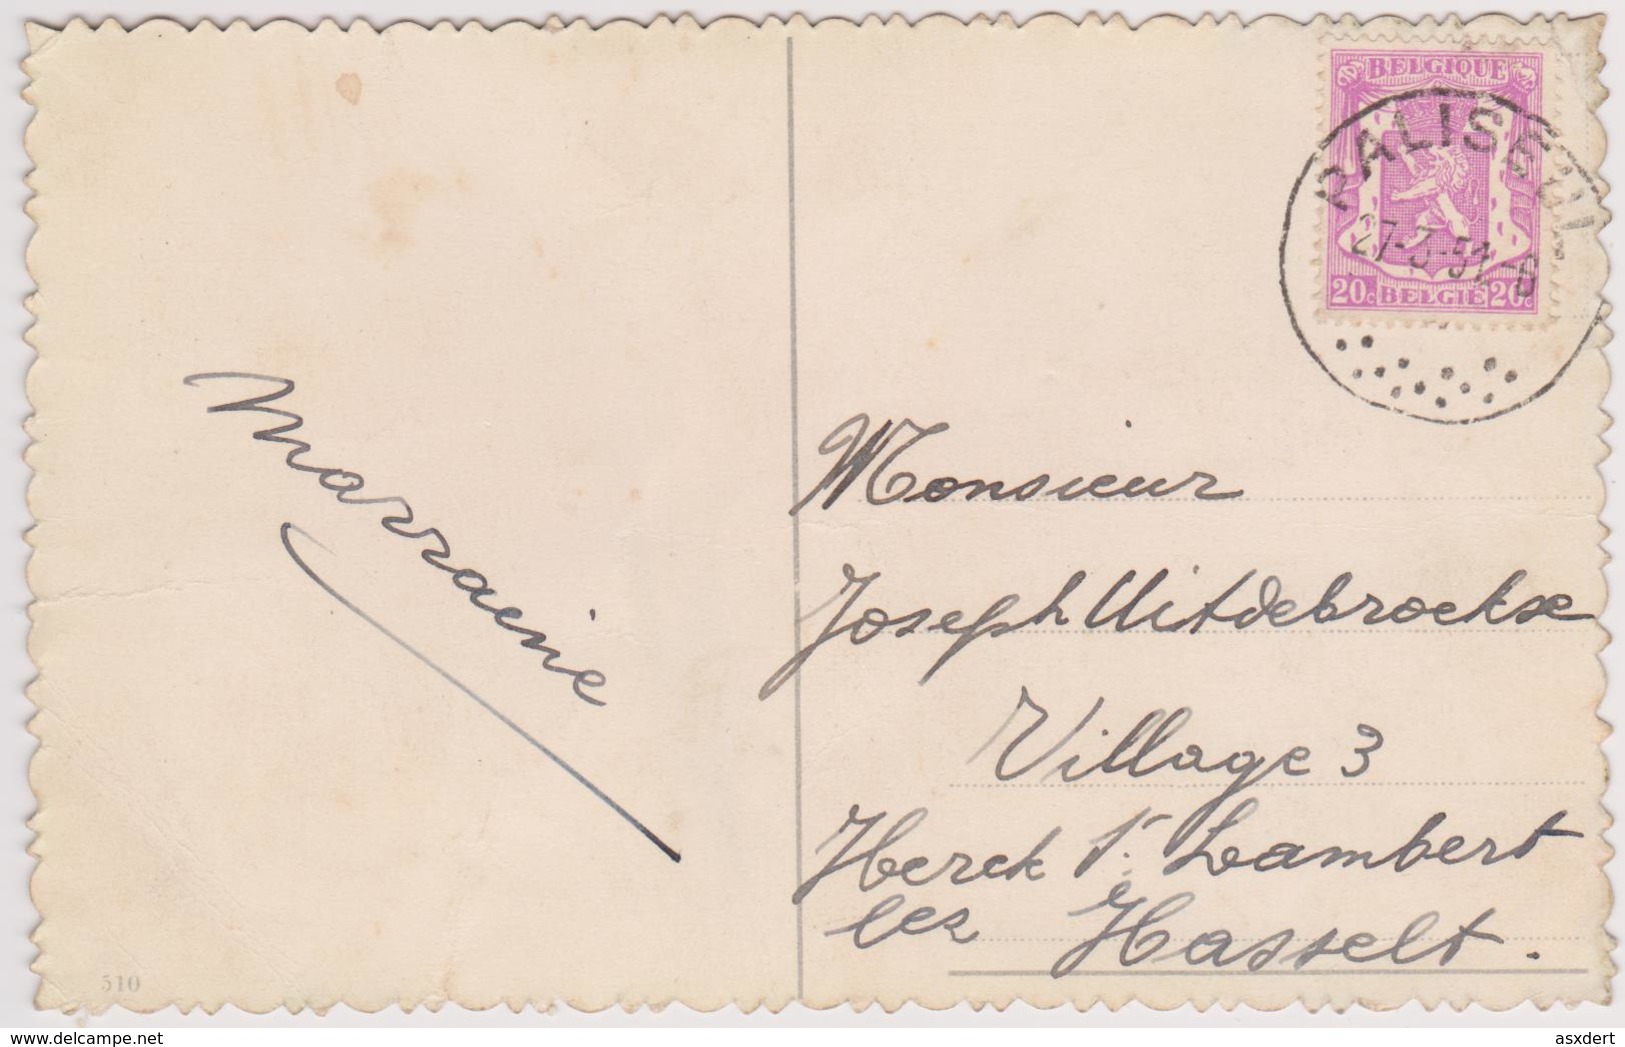 BELGIQUE
PALISEUL
27-3-51
20c BELGIE 20c
Marraine
Monsieur
Joseph Uitdebroekse
Village 3
Herck St Lambert
lez Hasselt.
510
delcampe.net
asxdert